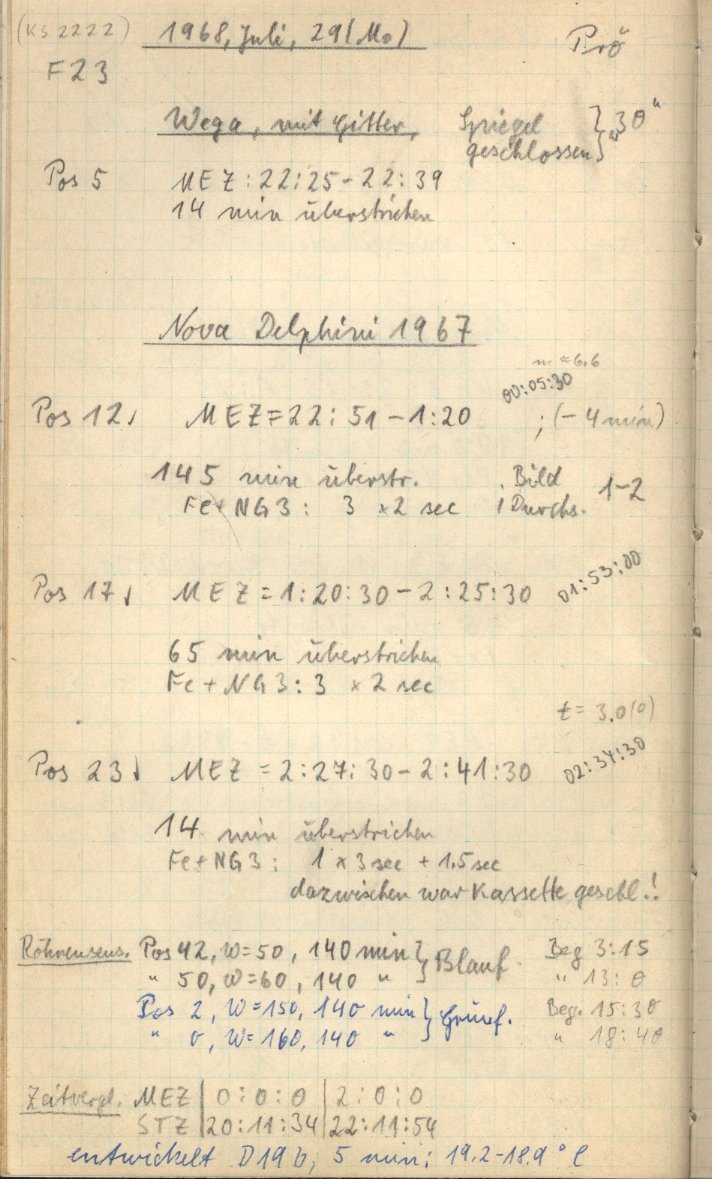 (KS 2222) 1968, Juli, 29 (Mo) Prö
F23
Wega, mit Gitter, Spiegel geschlossen } "30"
Pos 5 MEZ: 22:25-22:39
14 min überstrichen
Nova Delphini 1967
m ≈ 6.6
00:05:30
Pos 12↓ MEZ = 22:51-1:20 ; (-4 min)
145 min überstr. Bild 1-2
Fe+NG3: 3 x2 sec Durchs.
Pos 17↓ MEZ = 1:20:30-2:25:30 01:53:00
65 min überstrichen
Fe+NG3: 3 x2 sec
t = 3.0(0)
Pos 23↓ MEZ = 2:27:30-2:41:30 02:34:30
14 min überstrichen
Fe+NG3: 1 x 3 sec + 1,5 sec
dazwischen war Kassette geschl.!
Röhrensens. Pos 42, W=50, 140 min } Blauf. Beg 3:15
" 50, W=60, 140 " " 13:0
Pos 2, W=150, 140 min } Grünf. Beg. 15:30
" 0, W=160, 140 " " 18:40
Zeitvergl. MEZ | 0:0:0 | 2:0:0
STZ | 20:11:34 | 22:11:54
entwickelt D19b, 5 min; 19.2-18.9°C